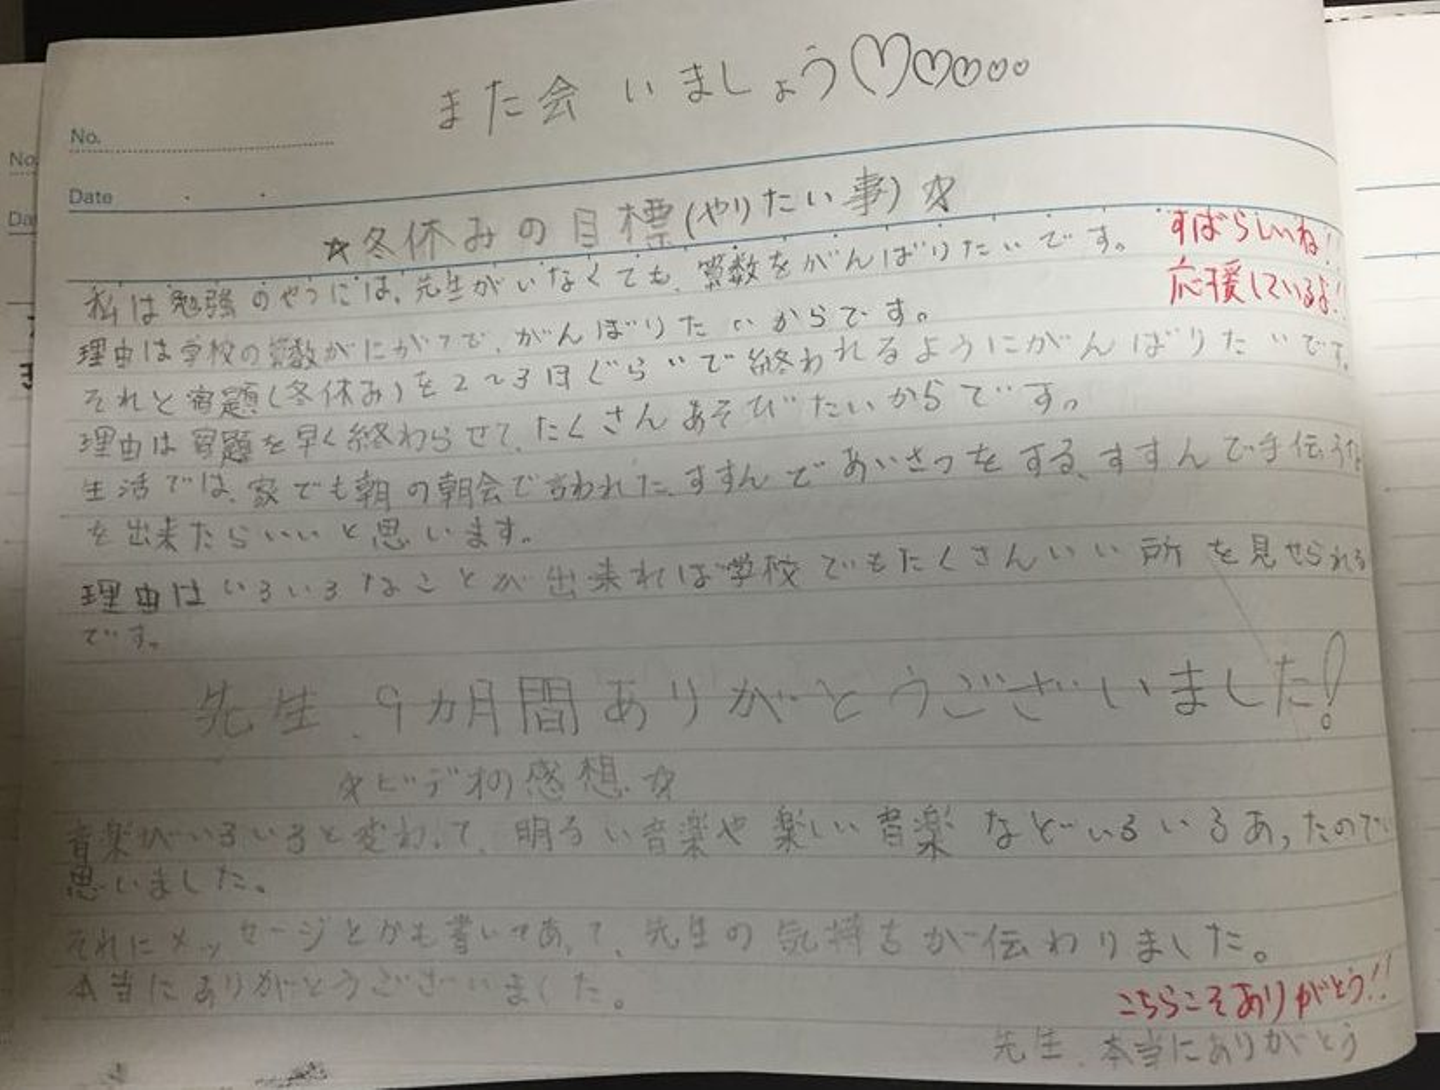 また会いましょう♡♡♡○○○
No.
Date
☆冬休みの目標(やりたい事)☆
すばらしいね!!
私は勉強のやつには、先生がいなくても、算数をがんばりたいです。
応援しているよ!!
理由は学校の算数がにがてで、がんばりたいからです。
それと宿題(冬休み)を2~3日ぐらいで終われるようにがんばりたいです。
理由は宿題を早く終わらせて、たくさんあそびたいからです。
生活では、家でも朝の朝会で言われた、すすんであいさつをする、すすんで手伝うな
を出来たらいいと思います。
理由はいろいろなことが出来れば学校でもたくさんいい所を見せられる
です。
先生、9カ月間ありがとうございました!
☆ビデオの感想☆
音楽がいろいろと変わって、明るい音楽や楽しい音楽などいろいろあったので
思いました。
それにメッセージとかも書いてあって、先生の気持ちが伝わりました。
本当にありがとうございました。
こちらこそありがとう!!
先生、本当にありがとう